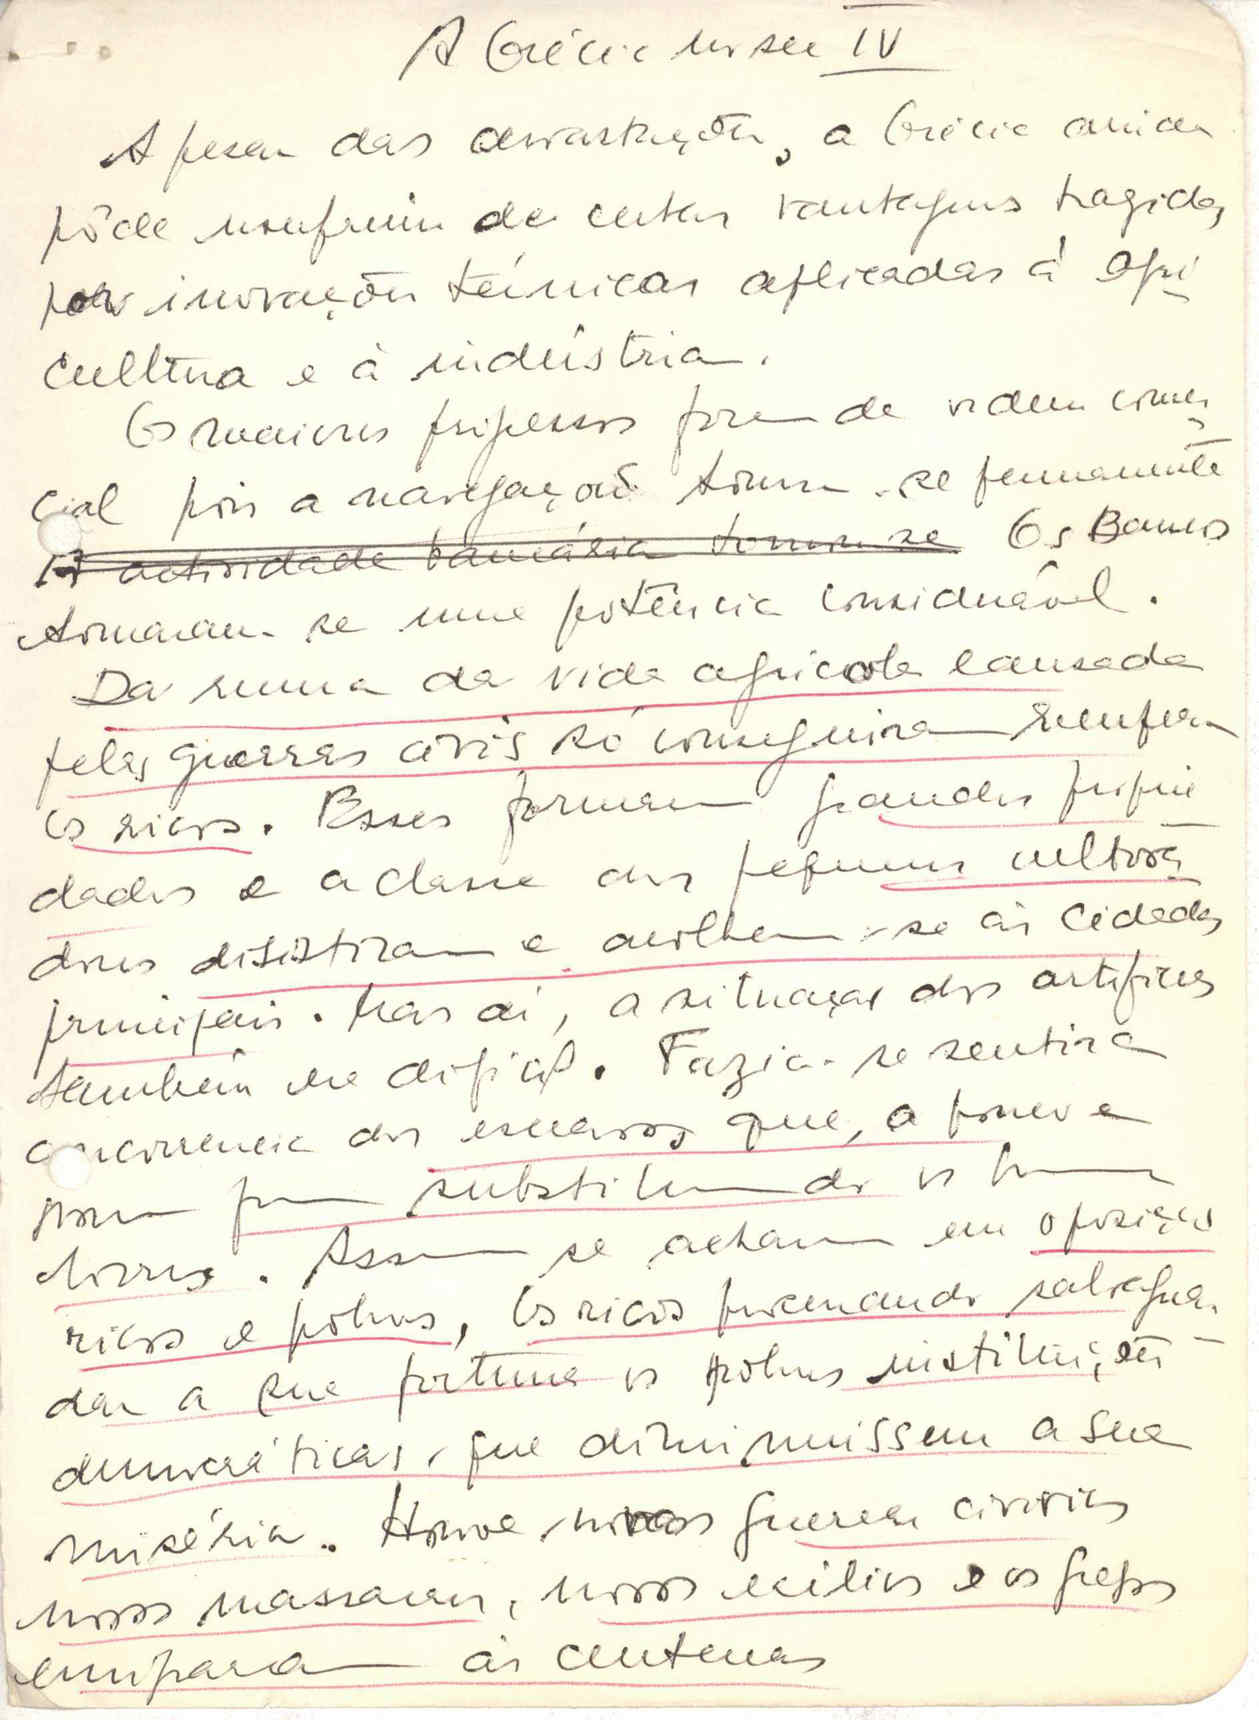 A Grécia no sec IV
Apesar das devastações, a Grécia ainda
pôde usufruir de certas vantagens trazidas
por inovações técnicas aplicadas à agri
cultura e à indústria.
Os maiores progressos foram de ordem comer
cial pois a navegação torna-se permanente
A actividade bancária torna-se Os Bancos
tornaram-se uma potência considerável.
Da ruina da vida agricola causada
pelas guerras civis só conseguiram recuperar
os ricos. Esses formam grandes proprie
dades e a classe dos pequenos cultiva
dores desistiram e acolhem-se às cidades
principais. Mas aí, a situação dos artifices
também era dificil. Fazia-se sentir a
concorrencia dos escravos que, a pouco e
pouco foram substituindo os homens
livres. Assim se acham em oposição
ricos e pobres, Os ricos procurando salvaguar
dar a sua fortuna os pobres instituições
democráticas, que diminuissem a sua
miséria. Houve novas guerras civis
novos massacres, novos exílios e os gregos
emigraram às centenas